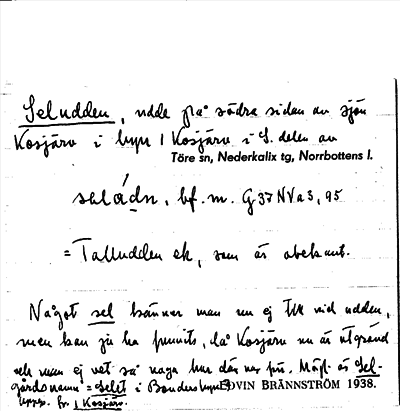 Seludden, udde på södra sidan av sjön
Kosjärv i byn 1 Kosjärv i S. delen av
Töre sn, Nederkalix tg, Norrbottens l.
bf. m. G 37 NV a 3, 95
= Talludden ek, som är obekant.
Något sel känner man nu ej till vid udden,
men kan ju ha funnits, då Kosjärv nu är utgrävd
och man ej vet så noga hur där var förr. Möjl. är Sel-
gårdsnamn = Selet i
EDVIN BRÄNNSTRÖM 1938.
1 Kosjärv.